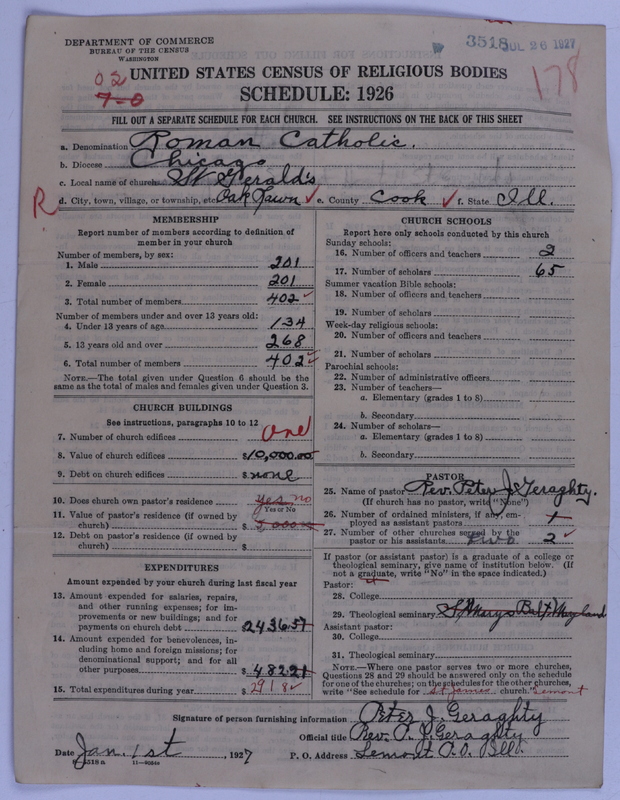 DEPARTMENT OF COMMERCE
BUREAU OF THE CENSUS
WASHINGTON
3518 JUL 26 1927
02
7-0
178
UNITED STATES CENSUS OF RELIGIOUS BODIES
SCHEDULE: 1926
FILL OUT A SEPARATE SCHEDULE FOR EACH CHURCH. SEE INSTRUCTIONS ON THE BACK OF THIS SHEET
a. Denomination Roman Catholic.
b. Diocese Chicago
c. Local name of church St Gerald's
R d. City, town, village, or township, etc. Oak Lawn e. County Cook f. State Ill.
MEMBERSHIP
Report number of members according to definition of
member in your church
Number of members, by sex:
1. Male 201
2. Female 201
3. Total number of members 402
Number of members under and over 13 years old:
4. Under 13 years of age 134
5. 13 years old and over 268
6. Total number of members 402
NOTE.—The total given under Question 6 should be the
same as the total of males and females given under Question 3.
CHURCH BUILDINGS
See instructions, paragraphs 10 to 12
7. Number of church edifices One
8. Value of church edifices $10,000.00
9. Debt on church edifices $none
10. Does church own pastor's residence yes no
Yes or No
11. Value of pastor's residence (if owned by
church) $
12. Debt on pastor's residence (if owned by
church) $
EXPENDITURES
Amount expended by your church during last fiscal year
13. Amount expended for salaries, repairs,
and other running expenses; for im-
provements or new buildings; and for
payments on church debt 2436.57
14. Amount expended for benevolences, in-
cluding home and foreign missions; for
denominational support; and for all
other purposes $482.21
15. Total expenditures during year $2918
CHURCH SCHOOLS
Report here only schools conducted by this church
Sunday schools:
16. Number of officers and teachers 2
17. Number of scholars 65
Summer vacation Bible schools:
18. Number of officers and teachers
19. Number of scholars
Week-day religious schools:
20. Number of officers and teachers
21. Number of scholars
Parochial schools:
22. Number of administrative officers
23. Number of teachers—
a. Elementary (grades 1 to 8)
b. Secondary
24. Number of scholars—
a. Elementary (grades 1 to 8)
b. Secondary
PASTOR
25. Name of pastor Rev. Peter J. Geraghty.
(If church has no pastor, write "None")
26. Number of ordained ministers, if any, em-
ployed as assistant pastors 1
27. Number of other churches served by the
pastor or his assistants two 2
If pastor (or assistant pastor) is a graduate of a college or
theological seminary, give name of institution below. (If
not a graduate, write "No" in the space indicated.)
Pastor:
28. College
29. Theological seminary St Marys Balt. Maryland
Assistant pastor:
30. College
31. Theological seminary
NOTE.—Where one pastor serves two or more churches,
Questions 28 and 29 should be answered only on the schedule
for one of the churches; on the schedules for the other churches,
write "See schedule for St James church." Lemont
Signature of person furnishing information Peter J. Geraghty
Official title Rev. P. J. Geraghty
Date Jan. 1st, 1927 P. O. Address Lemont P.O. Ill.